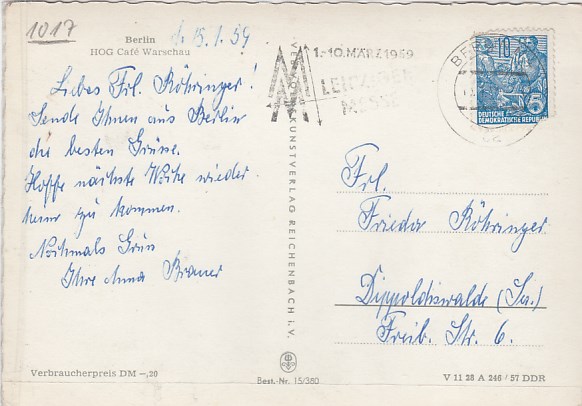 1017
Berlin
HOG Café Warschau
d. 15.1.59
Liebes Frl. Röhringer!
Sende Ihnen aus Berlin
die besten Grüsse.
Hoffe nächste Woche wieder
heim zu kommen.
Nochmals Grüss
Ihre Anna Brauer
Verbraucherpreis DM –,20
VERLAG KUNSTVERLAG REICHENBACH i. V.
Best.-Nr. 15/380
1.-10. MÄRZ 1959
LEIPZIGER
MESSE
BERLIN
10
5
DEUTSCHE
DEMOKRATISCHE REPUBLIK
Frl.
Frieda Röhringer
Dippoldiswalde (Sa.)
Freib. Str. 6.
V 11 28 A 246 / 57 DDR